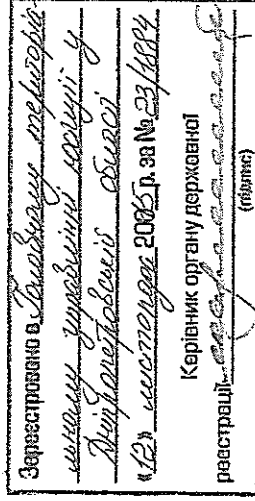 Зареєстровано в Головному територіа-
льному управлінні юстиції у
Дніпропетровській області
"12" листопада 2015 р. за № 23/1884
Керівник органу державної
реєстрації
(підпис)